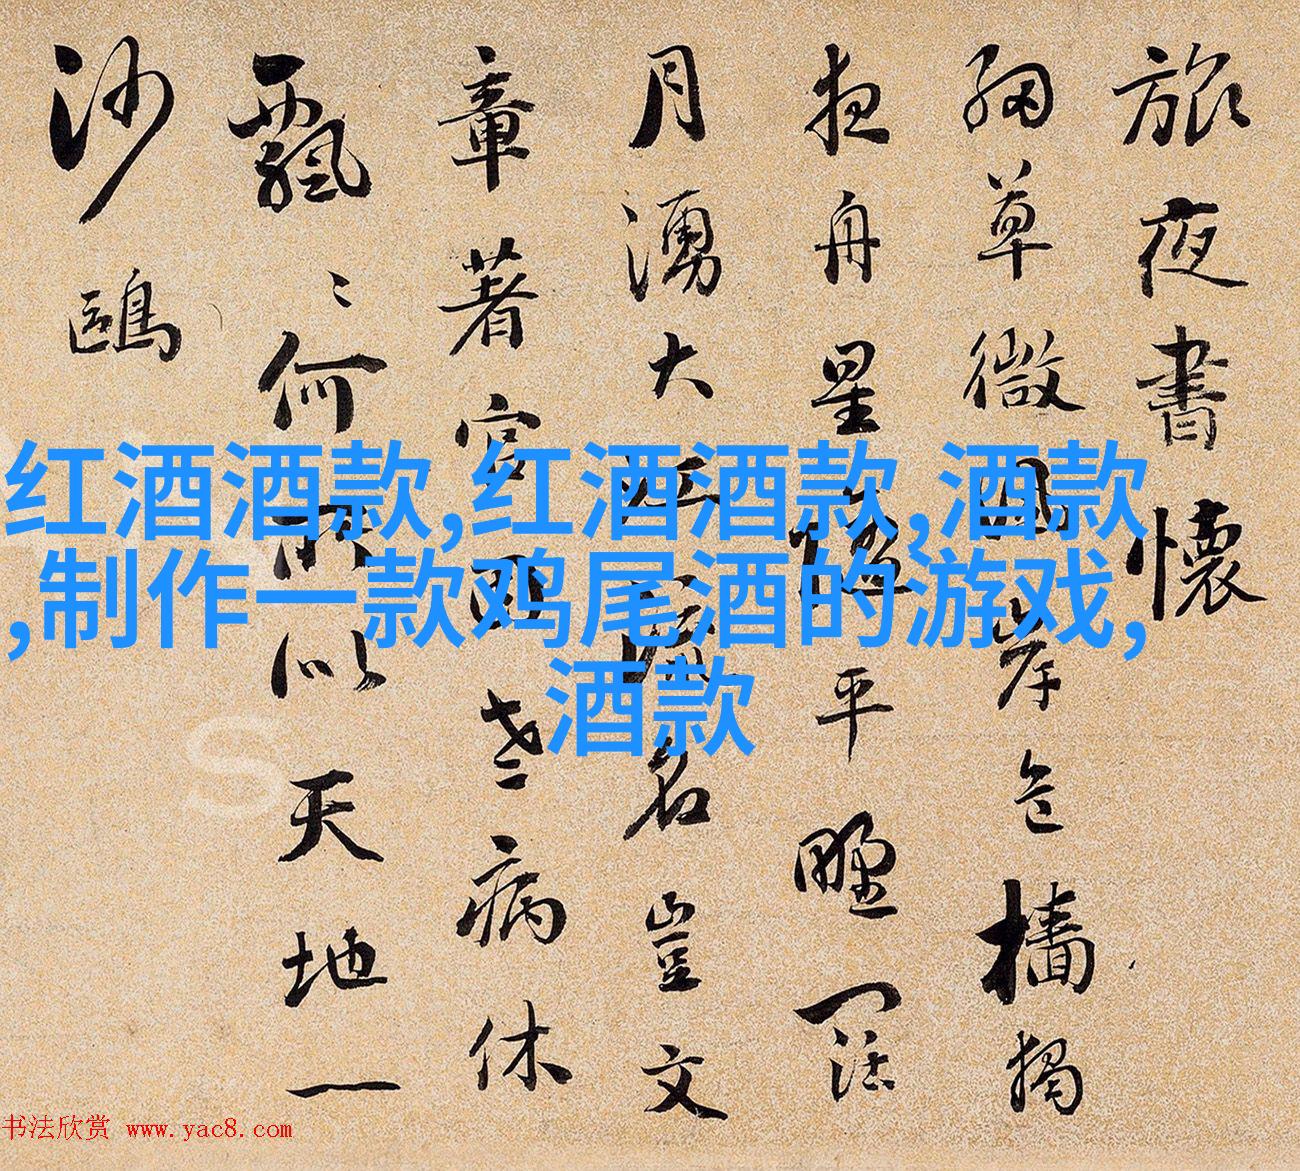 旅夜書懷
細草微風岸危檣獨
夜舟星垂平野闊
月湧大江流名豈文
章著官老病休
飄〻何所似天地一
沙鷗
红酒酒款,红酒酒款,酒款
,制作一款鸡尾酒的游戏,
酒款
书法欣赏 www.yac8.com